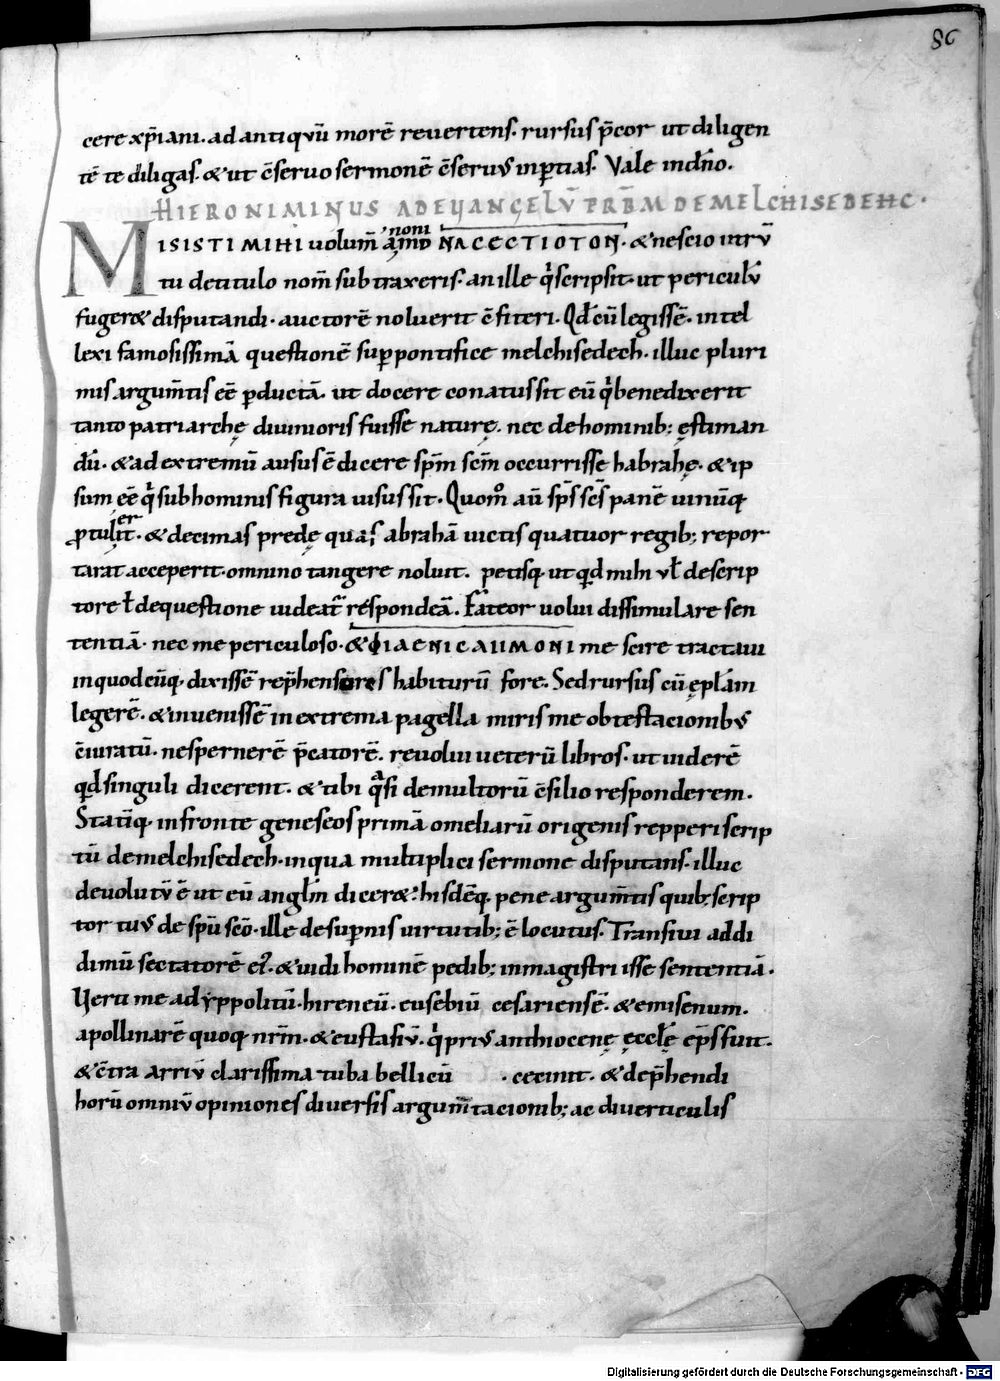 86
cere xp̄iani. ad antiqvū morē reuertens. rursus p̄cor ut diligen
tē te diligas. & ut c̄seruo sermonē c̄seruꝰ inp̱tias. Vale in dn̄o.
HIERONIMINUS AD EUANGELV̄ PRB̄M DE MELCHISEDEHC.
MISISTI MIHI uolum̄ noni
NACECTIOTON. & nescio utrū
tu de titulo nom̄ subtraxeris. an ille qͥ scripsit. ut periculū
fuger& disputandi. auctorē noluerit c̄fiteri. Qd̄ cū legissē. intel
lexi famosissimā questionē sup̱ pontifice melchisedech. illuc pluri
mis argum̄tis eē p̱ductā. ut docere conatus sit eū qͥ benedixerit
tanto patriarchę diuinioris fuisse naturę. nec de hominib; ęstiman
dū. & ad extremū ausus ē dicere sp̄m sc̄m occurrisse habrahę. & ip
sum eē qͥ sub hominis figura uisus sit. Quom̊ aū sp̄s sc̄s panē uinūq
ꝓtulit. & decimas predę quas abrahā uictis quatuor regib; repor
er
tarat acceperit. omnino tangere noluit. petisq. ut qd mihi vł de scrip
tore ł de questione uideat᷑ respondeā. Fateor uolui dissimulare sen
tentiā. nec me periculoso. & ΦIAENICAIIMONI me scire tractatu
in quodcūq. dixissē rep̄hensores habiturū fore. Sed rursus cū ępłam
legerē. & inuenissē in extrema pagella miris me obtestacionibꝰ
c̄iuratū. ne spernerē p̄catorē. reuolui ueterū libros. ut uiderē
qd singuli dicerent. & tibi qͣsi de multorū c̄silio responderem.
Statīq. in fronte geneseos primā omeliarū origenis repperi scrip
tū de melchisedech. in qua multiplici sermone disputans. illuc
deuolutꝰ ē ut eū angłm dicer&. hisdēq. pene argum̄tis quib; scrip
tor tuꝰ de sp̄u sc̄o. ille de sup̱nis uirtutib; ē locutus. Transiui ad di
dimū sectatorē eiꝰ. & uidi hominē pedib; in magistri isse sententiā.
Verti me ad yppolitū. hireneū. eusebiū cesariensē. & emisenum.
apollinarē quoq. nr̄m. & eustasiū. qͥ priꝰ anthiocenę ęccłę ep̄s fuit.
& c̄tra arriū clarissima tuba bellicū . cecinit. & dep̄hendi
horū omniū opiniones diuersis argum̄tacionib; ac diuerticulis
Digitalisierung gefördert durch die Deutsche Forschungsgemeinschaft - DFG